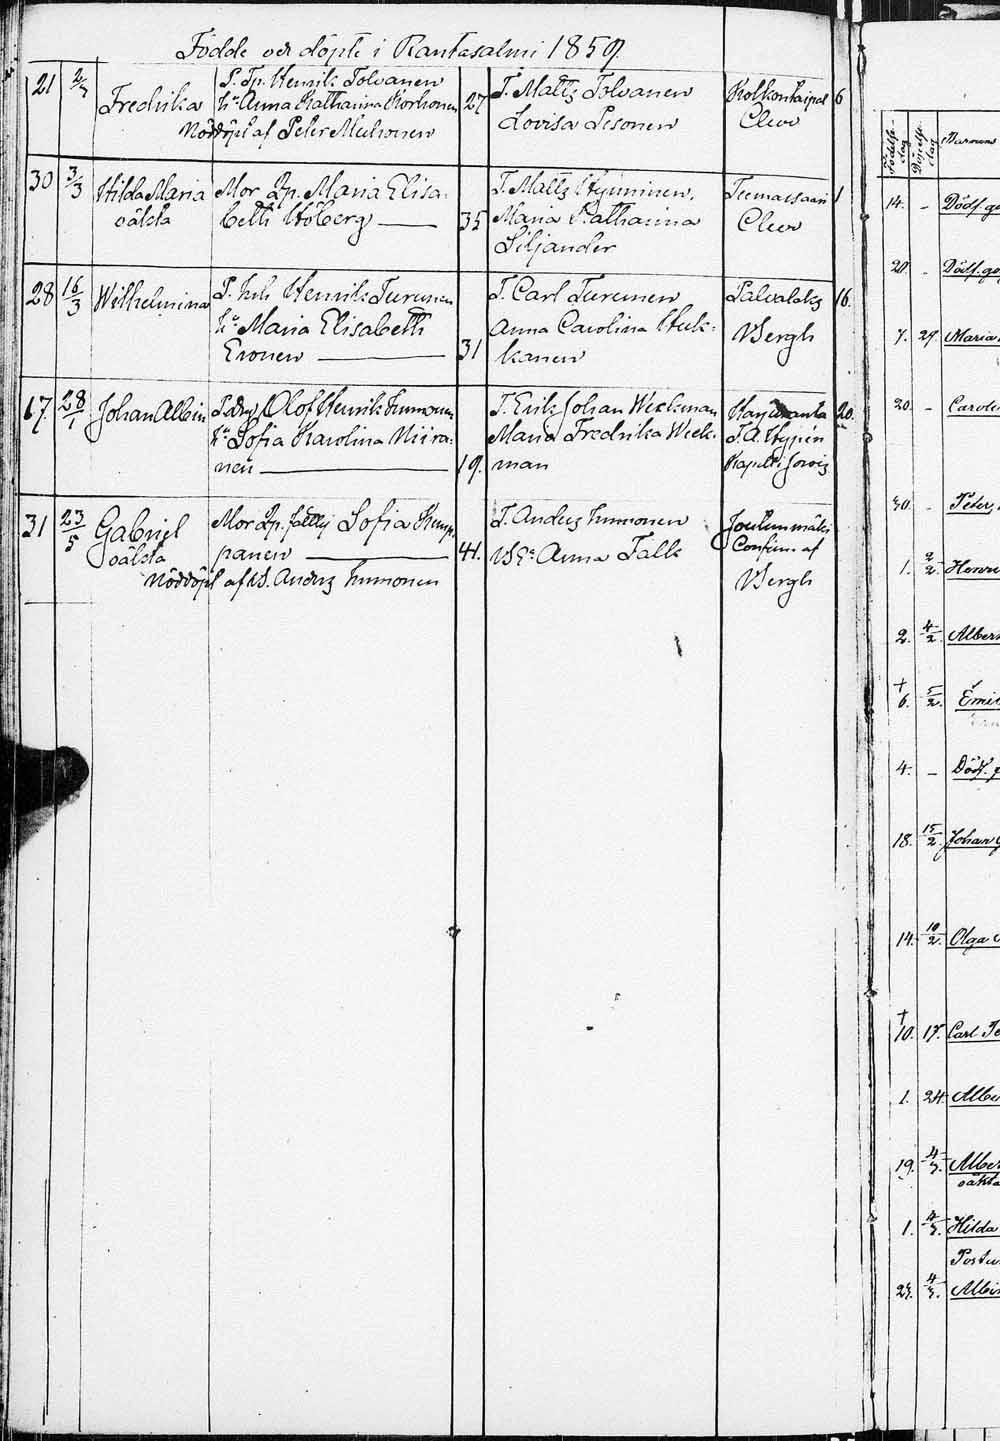 Födde och döpte i Rantasalmi 1859.
21 2/7 Fredrika
P. Tp. Henrik Tolvanen
hu Anna Katharina Korhonen 27
Nöddöpt af Peter Muhonen
T. Matts Tolvanen
Lovisa Pesonen
Kolkontaipal 6
Cleve
30 3/3 Hilda Maria
oäkta
Mor Qp. Maria Elisa-
beth Höberg 35
T. Matts Hynninen,
Maria Katharina
Siljander
Teemassaari 1
Cleve
28 16/3 Wilhelmina
P. Inh Henrik Turunen
hu Maria Elisabeth
Eronen 31
T. Carl Turunen
Anna Carolina Huk-
kanen
Palvalaks 16.
Bergh
17. 28/1 Johan Albin
P. Olof Henrik Immonen
hu Sofia Karolina Miira-
nen 19.
T. Erik Johan Weckman
Maria Fredrika Weck-
man
Harjuranta 20.
T. A. Hypén
Kapell i Jorois
31 23/5 Gabriel
oäkta
Mor Qp. Sofia Kemp-
panen 41.
Nöddöpt af B. Anders Immonen
T. Anders Immonen
Anna Falk
Joutenmäki
Confirm. af
Bergh
Födelse-
dag
Döpelse-
dag
Barnens
14. - Dödf. go
20. - Dödf. go
7. 27. Maria
20. - Caroli
30. - Peter,
1. 2/2 Henri
2. 4/2. Alber
† 6. 5/2. Emil
4. - Dödf. g
18. 15/2. Johan G
14. 10/2. Olga
† 10. 17. Carl
1. 24. Albe
19. 4/3. Alber
oäkta
1. 4/3. Hilda
Postu
23. 4/3. Albin